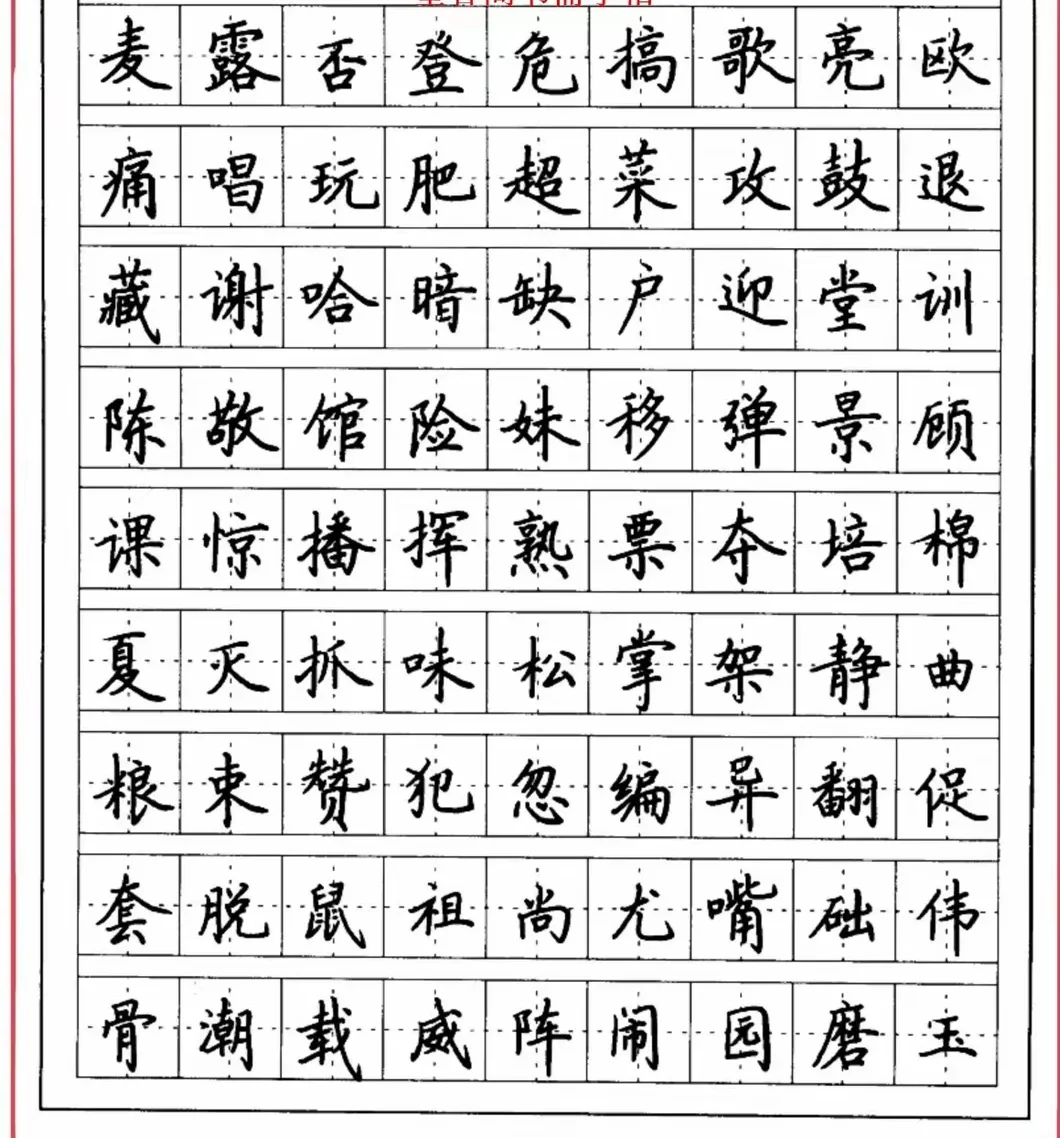 麦露否登危搞歌亮欧
痛唱玩肥超菜攻鼓退
藏谢哈暗缺户迎堂训
陈敬馆险妹移弹景顾
课惊播挥熟票夺培棉
夏灭抓味松掌架静曲
粮束赞犯忽编异翻促
套脱鼠祖尚尤嘴础伟
骨潮载威阵闹园磨玉